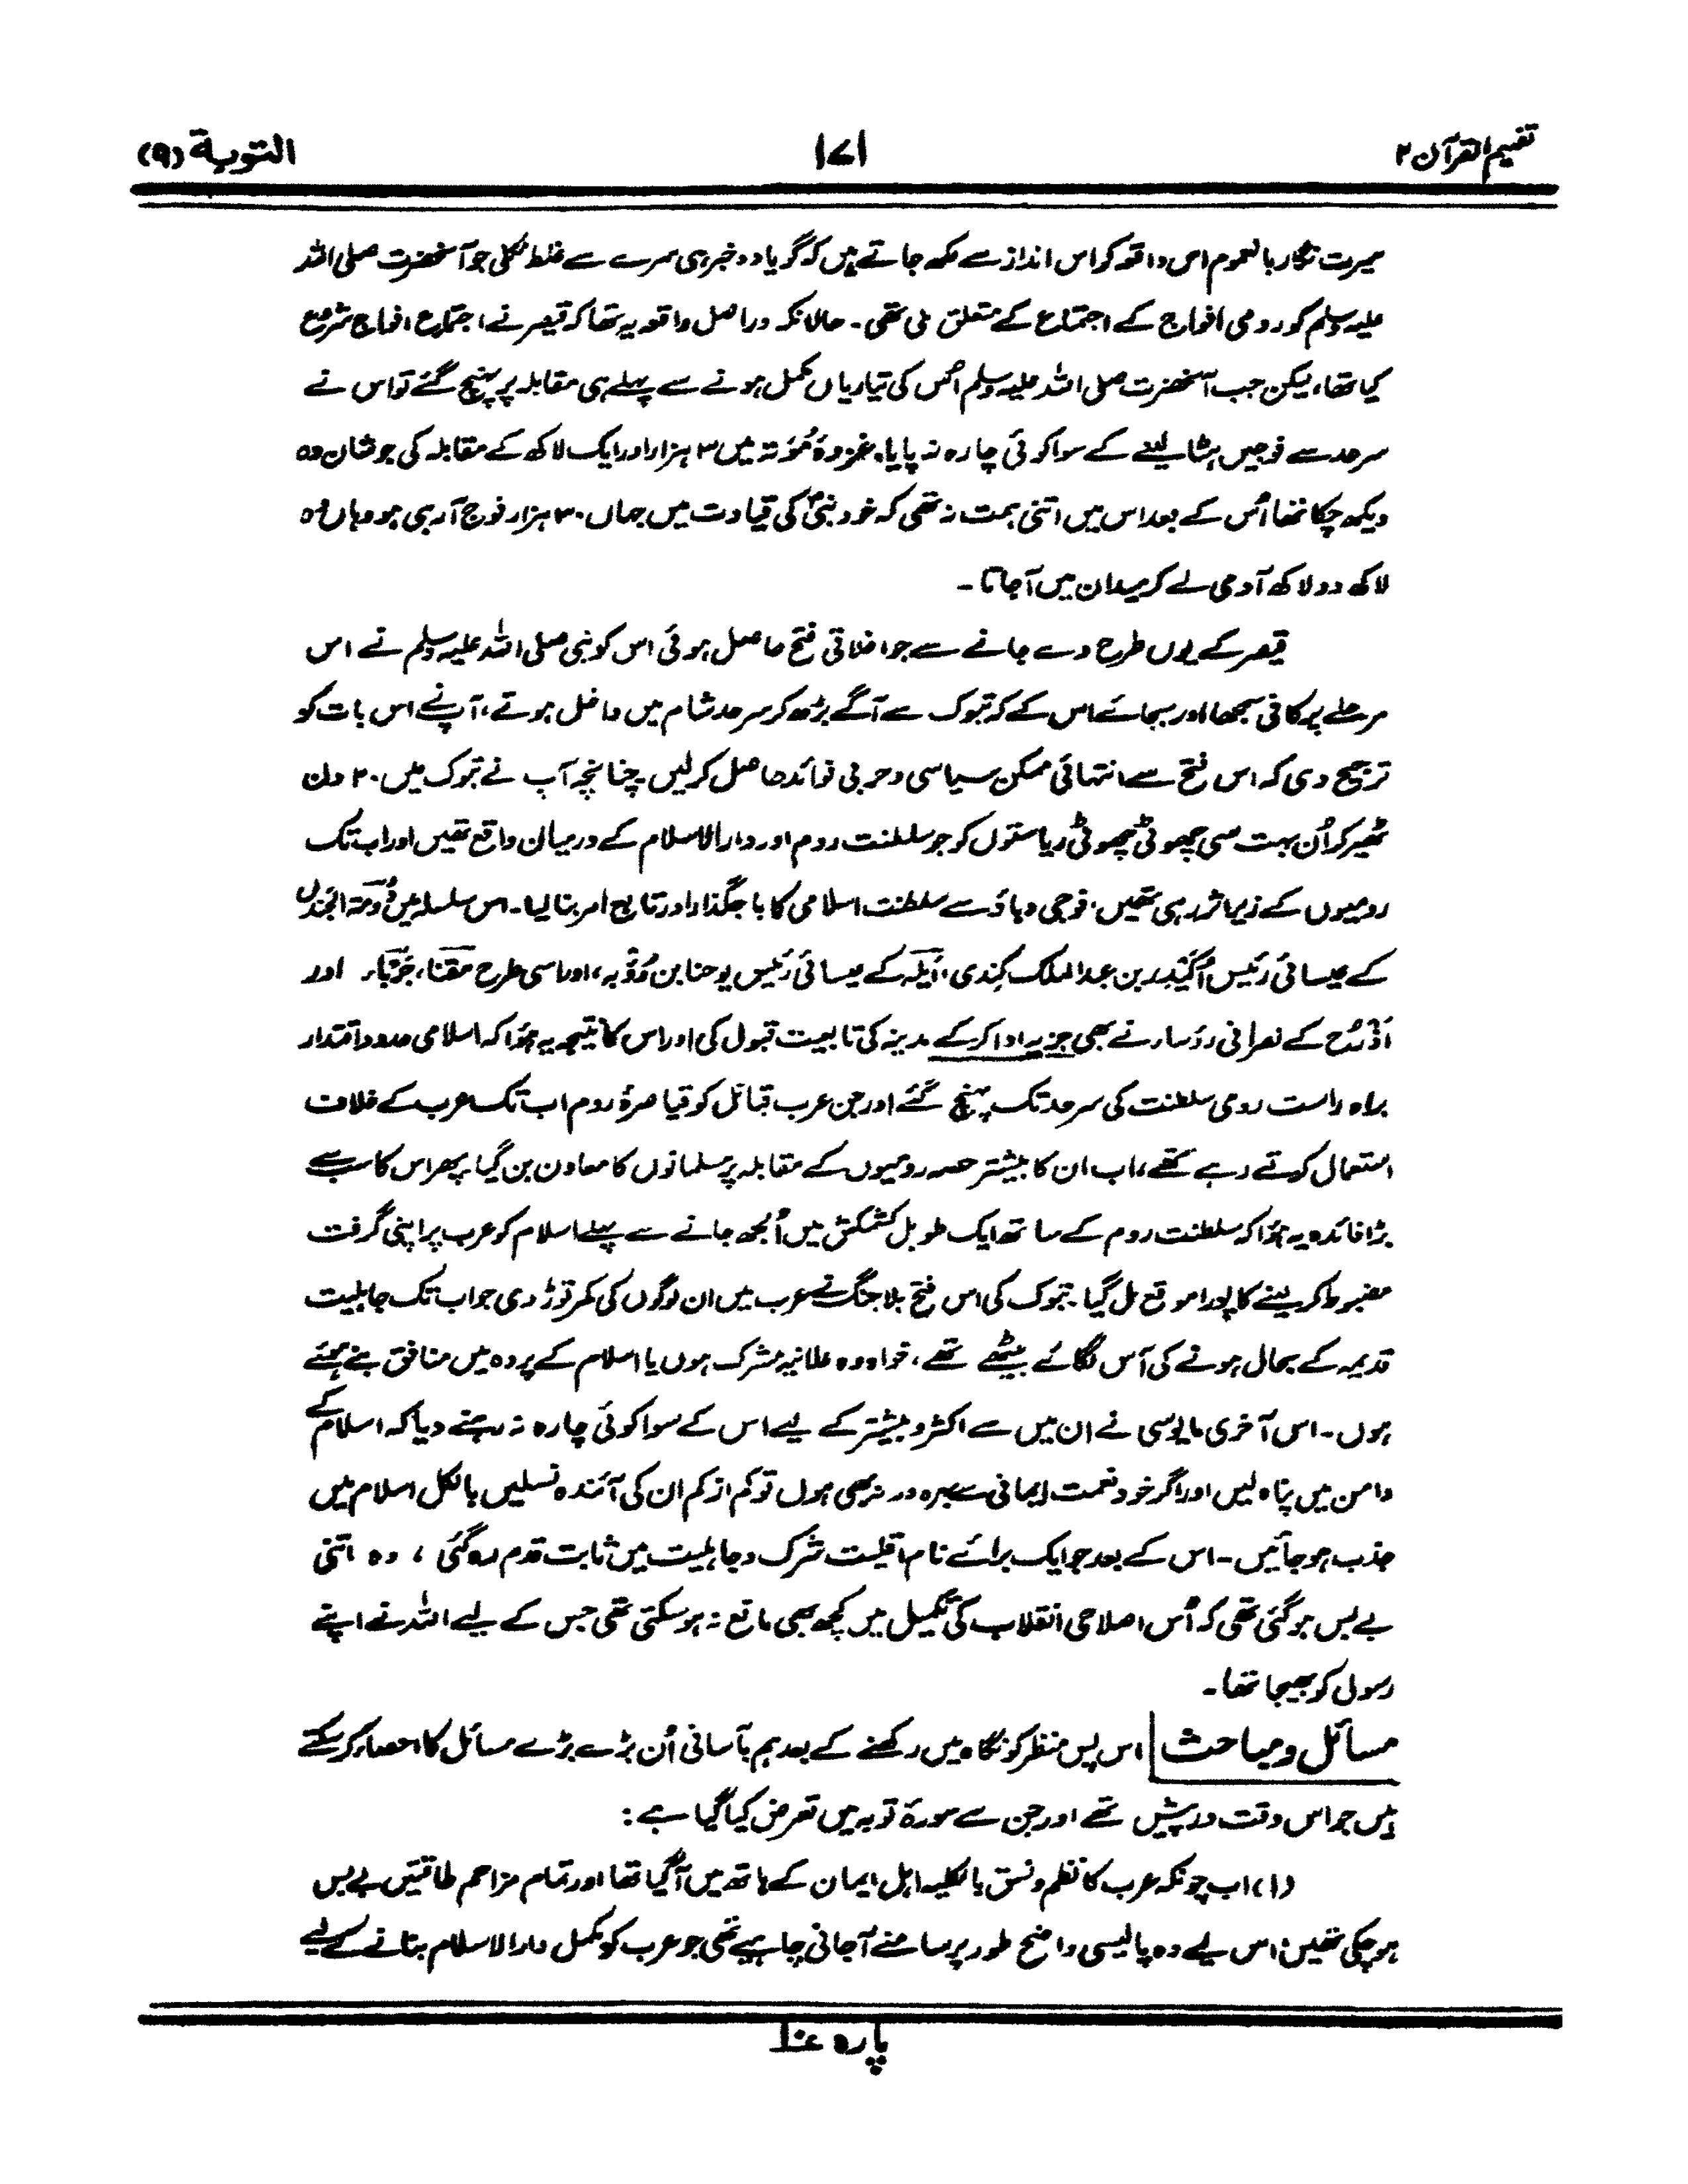 تفہیم القرآن ۲
۱۷۱
التوبۃ (۹)
سیرت نگار بالعموم اس واقعہ کو اس انداز سے لکھ جاتے ہیں کہ گویا وہ خبر ہی سرے سے غلط نکلی جو آنحضرت صلی اللہ
علیہ وسلم کو رومی افواج کے اجتماع کے متعلق ملی تھی۔ حالانکہ دراصل واقعہ یہ تھا کہ قیصر نے اجتماع افواج شروع
کیا تھا، لیکن جب آنحضرت صلی اللہ علیہ وسلم اُس کی تیاریاں مکمل ہونے سے پہلے ہی مقابلہ پر پہنچ گئے تو اس نے
سرحد سے فوجیں ہٹا لینے کے سوا کوئی چارہ نہ پایا۔ غزوۂ مُوتہ میں ۳ ہزار اور ایک لاکھ کے مقابلہ کی جو شان وہ
دیکھ چکا تھا اُس کے بعد اس میں اتنی ہمت نہ تھی کہ خود نبیؐ کی قیادت میں جہاں ۳۰ ہزار فوج آ رہی ہو وہاں وہ
لاکھ دو لاکھ آدمی لے کر میدان میں آ جاتا۔
قیصر کے یوں طرح دے جانے سے جو اخلاقی فتح حاصل ہوئی اس کو نبی صلی اللہ علیہ وسلم نے اس
مرحلے پر کافی سمجھا اور بجائے اس کے کہ تبوک سے آگے بڑھ کر سرحد شام میں داخل ہوتے، آپ نے اس بات کو
ترجیح دی کہ اس فتح سے انتہائی ممکن سیاسی و حربی فوائد حاصل کر لیں۔ چنانچہ آپ نے تبوک میں ۲۰ دن
ٹھیر کر اُن بہت سی چھوٹی چھوٹی ریاستوں کو جو سلطنت روم اور دارالاسلام کے درمیان واقع تھیں اور اب تک
رومیوں کے زیر اثر رہی تھیں، فوجی دباؤ سے سلطنت اسلامی کا باجگذار اور تابع امر بنا لیا۔ اس سلسلہ میں دُومۃ الجندل
کے عیسائی رئیس اُکَیْدِر بن عبدالملک کِندی، اَیلَہ کے عیسائی رئیس یوحنا بن رُؤْبہ، اور اسی طرح مَقنا، جَرْبَاء اور
اَذْرُح کے نصرانی رؤساء نے بھی جزیہ ادا کر کے مدینہ کی تابعیت قبول کی اور اس کا نتیجہ یہ ہوا کہ اسلامی حدود اقتدار
براہ راست رومی سلطنت کی سرحد تک پہنچ گئے اور جن عرب قبائل کو قیاصرۂ روم اب تک عرب کے خلاف
استعمال کرتے رہے تھے، اب ان کا بیشتر حصہ رومیوں کے مقابلہ پر مسلمانوں کا معاون بن گیا۔ پھر اس کا سب سے
بڑا فائدہ یہ ہوا کہ سلطنت روم کے ساتھ ایک طویل کشمکش میں اُلجھ جانے سے پہلے اسلام کو عرب پر اپنی گرفت
مضبوط کر لینے کا پورا موقع مل گیا۔ تبوک کی اس فتح بلا جنگ نے عرب میں ان لوگوں کی کمر توڑ دی جو اب تک جاہلیت
قدیمہ کے بحال ہونے کی آس لگائے بیٹھے تھے، خواہ وہ علانیہ مشرک ہوں یا اسلام کے پردہ میں منافق بنے ہوئے
ہوں۔ اس آخری مایوسی نے ان میں سے اکثر و بیشتر کے لیے اس کے سوا کوئی چارہ نہ رہنے دیا کہ اسلام کے
دامن میں پناہ لیں اور اگر خود نعمت ایمانی سے بہرہ ور نہ بھی ہوں تو کم از کم ان کی آئندہ نسلیں بالکل اسلام میں
جذب ہو جائیں۔ اس کے بعد جو ایک برائے نام اقلیت شرک و جاہلیت میں ثابت قدم رہ گئی، وہ اتنی
بے بس ہو گئی تھی کہ اُس اصلاحی انقلاب کی تکمیل میں کچھ بھی مانع نہ ہو سکتی تھی جس کے لیے اللہ نے اپنے
رسول کو بھیجا تھا۔
مسائل و مباحث اس پس منظر کو نگاہ میں رکھنے کے بعد ہم بآسانی اُن بڑے بڑے مسائل کا احصاء کر سکتے
ہیں جو اس وقت درپیش تھے اور جن سے سورۂ توبہ میں تعرض کیا گیا ہے:
(۱) اب چونکہ عرب کا نظم و نسق بالکلیہ اہل ایمان کے ہاتھ میں آ گیا تھا اور تمام مزاحم طاقتیں بے بس
ہو چکی تھیں، اس لیے وہ پالیسی واضح طور پر سامنے آ جانی چاہیے تھی جو عرب کو مکمل دارالاسلام بنانے کے لیے
پارہ ۱۰